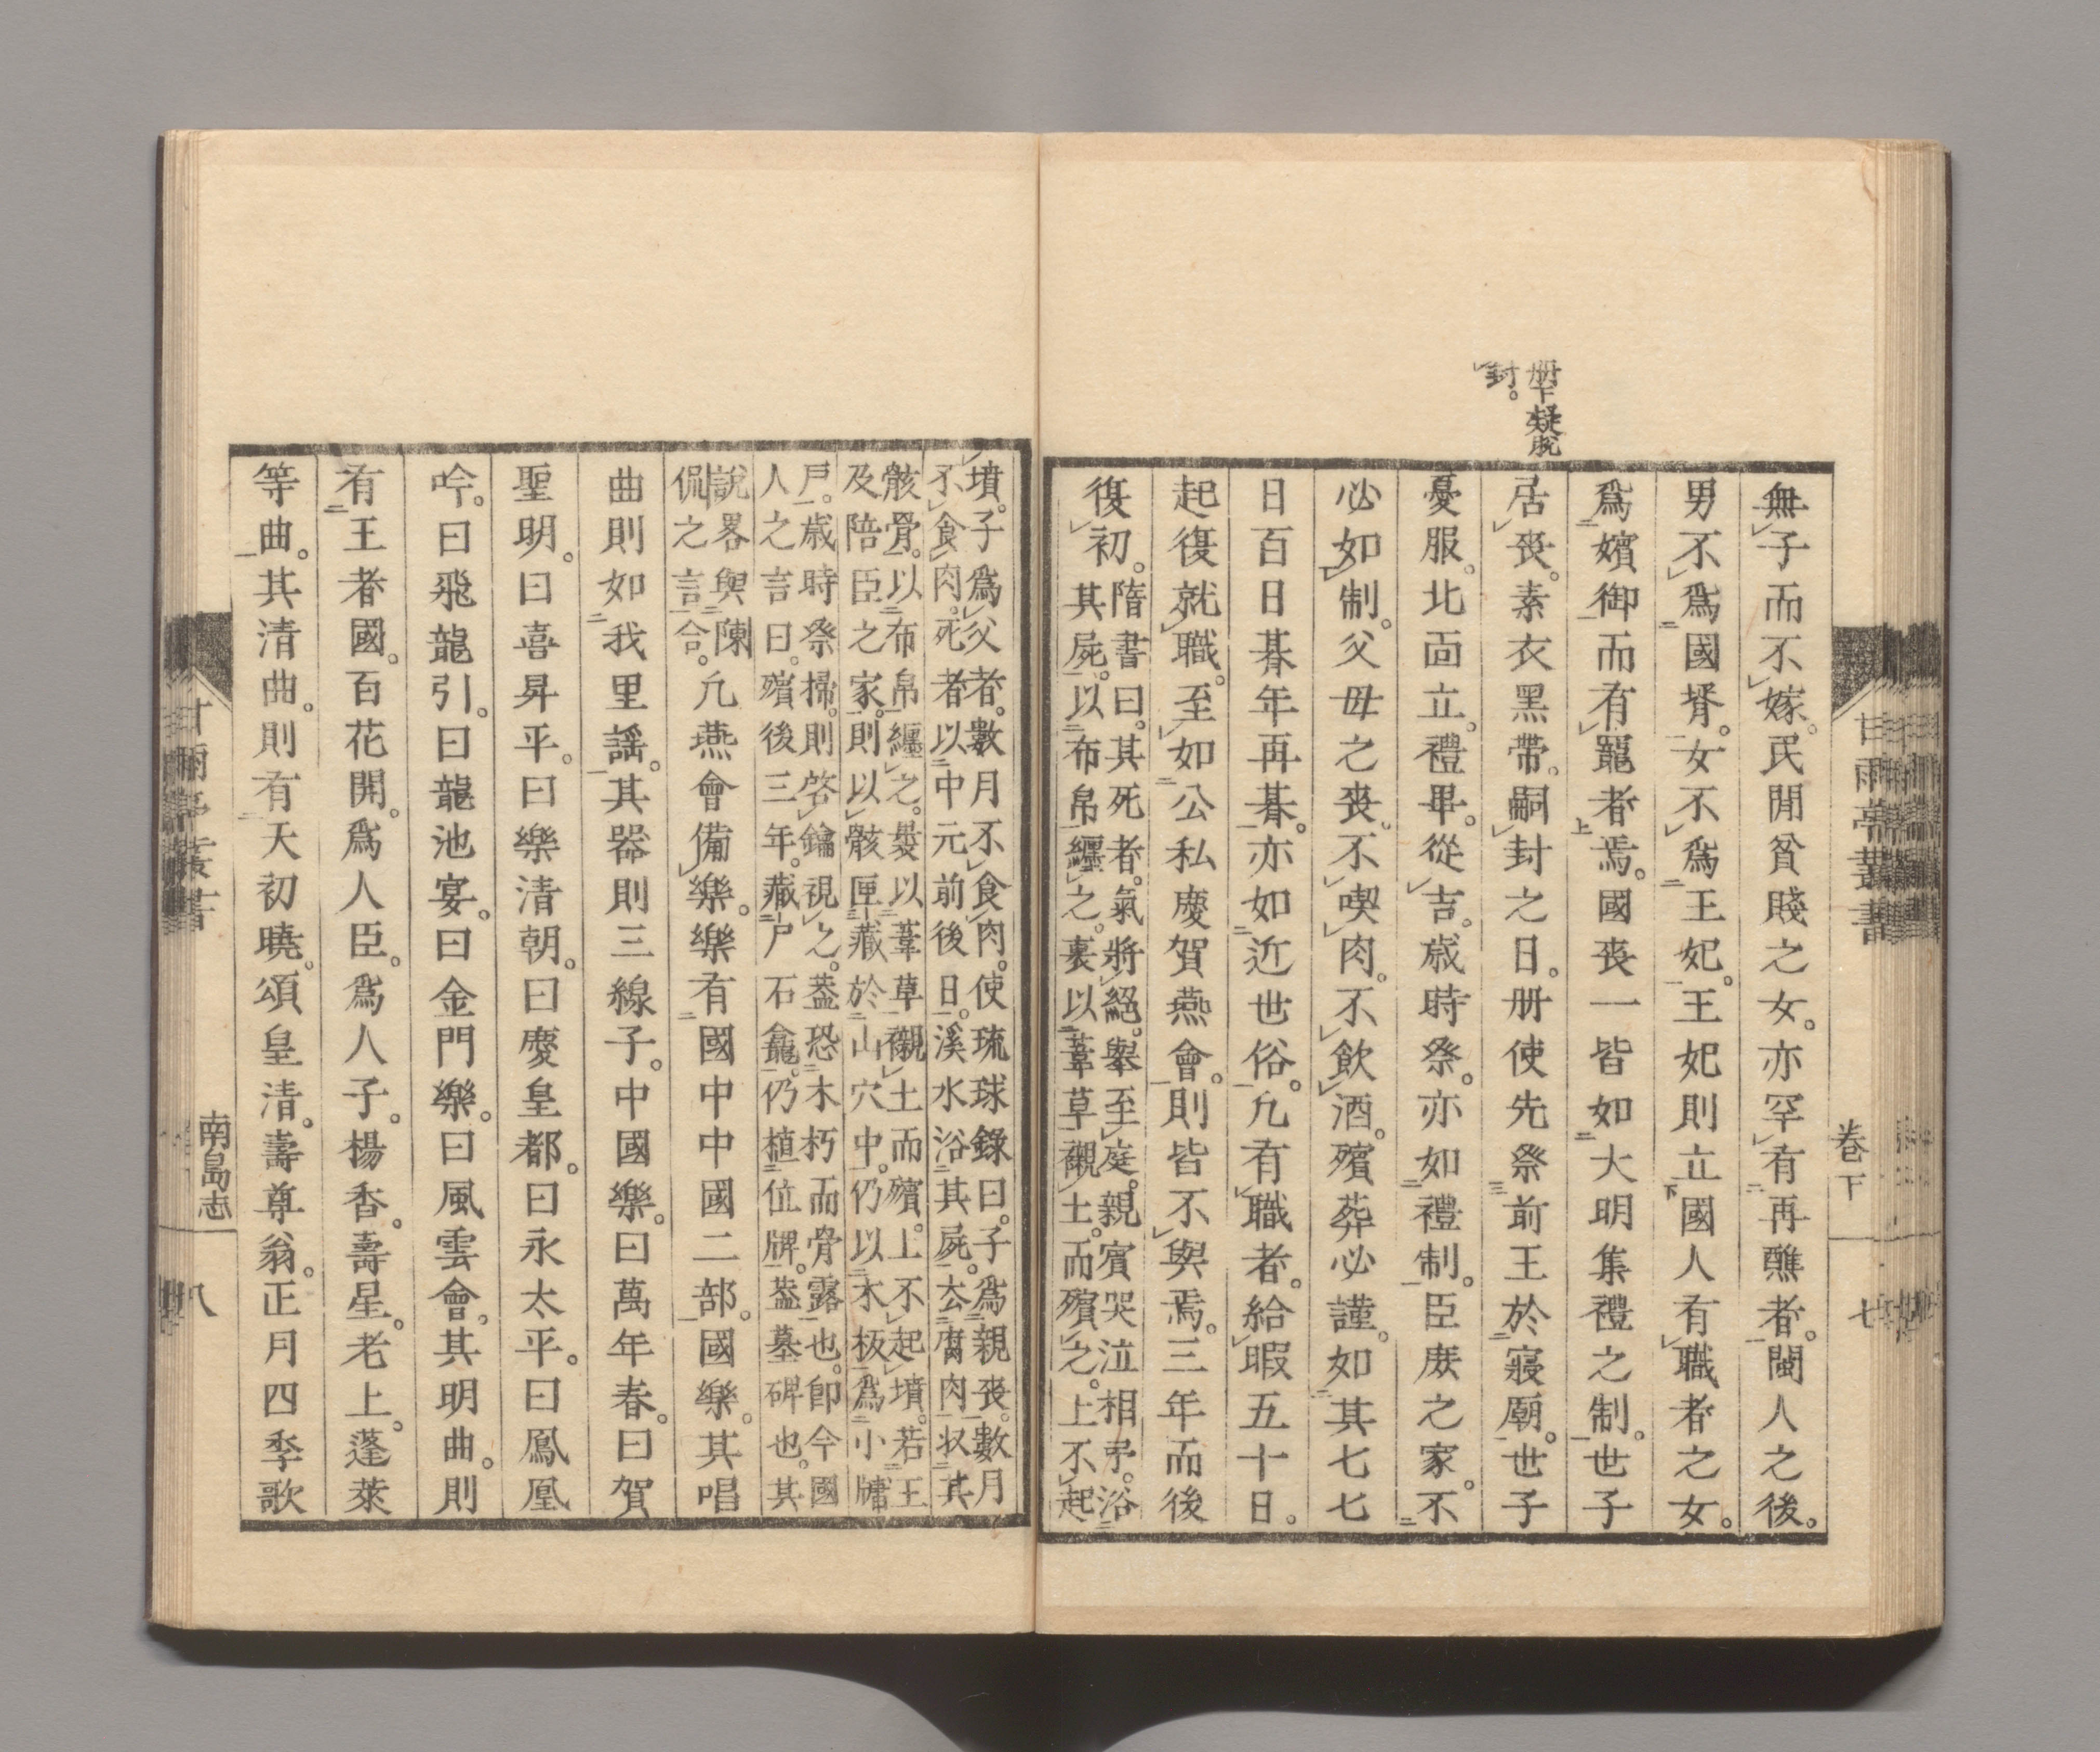 冊下疑脫
封。
無子而不嫁。民間貧賤之女。亦罕有再醮者。閩人之後。
男不爲國壻。女不爲王妃。王妃則立國人有職者之女。
爲嬪御而有寵者焉。國喪一皆如大明集禮之制。世子
居喪。素衣黑帶。嗣封之日。册使先祭前王於寢廟。世子
憂服。北面立。禮畢。從吉。歲時祭。亦如禮制。臣庶之家。不
必如制。父母之喪。不喫肉。不飲酒。殯葬必謹。如其七七
日百日朞年再朞。亦如近世俗。凡有職者。給暇五十日。
起復就職。至如公私慶賀燕會。則皆不與焉。三年而後
復初。
隋書曰。其死者。氣將絕。擧至庭。親賓哭泣相弔。浴
其屍。以布帛纏之。裹以葦草。襯土。而殯之。上不起
甘雨亭叢書
卷下
七
墳。子爲父者。數月不食肉。使琉球錄曰。子爲親喪。數月
不食肉。死者以中元前後日。溪水浴其屍。去腐肉。收其
骸骨。以布帛纏之。裝以葦草。襯土而殯。上不起墳。若王
及陪臣之家。則以骸匣藏於山穴中。仍以木板爲小牖
戶。歲時祭掃。則啓鑰視之。蓋恐木朽而骨露也。卽今國
人之言曰。殯後三年。藏戶石龕。仍植位牌。蓋墓碑也。其
說畧與陳
侃之言合。
凡燕會備樂。樂有國中中國二部。國樂。其唱
曲則如我里謠。其器則三線子。中國樂。曰萬年春。曰賀
聖明。曰喜昇平。曰樂清朝。曰慶皇都。曰永太平。曰鳳凰
吟。曰飛龍引。曰龍池宴。曰金門樂。曰風雲會。其明曲。則
有王者國。百花開。爲人臣。爲人子。楊香。壽星。老上。蓬萊
等曲。其清曲。則有天初曉。頌皇清。壽尊翁。正月四季歌
甘雨亭叢書
南島志
八